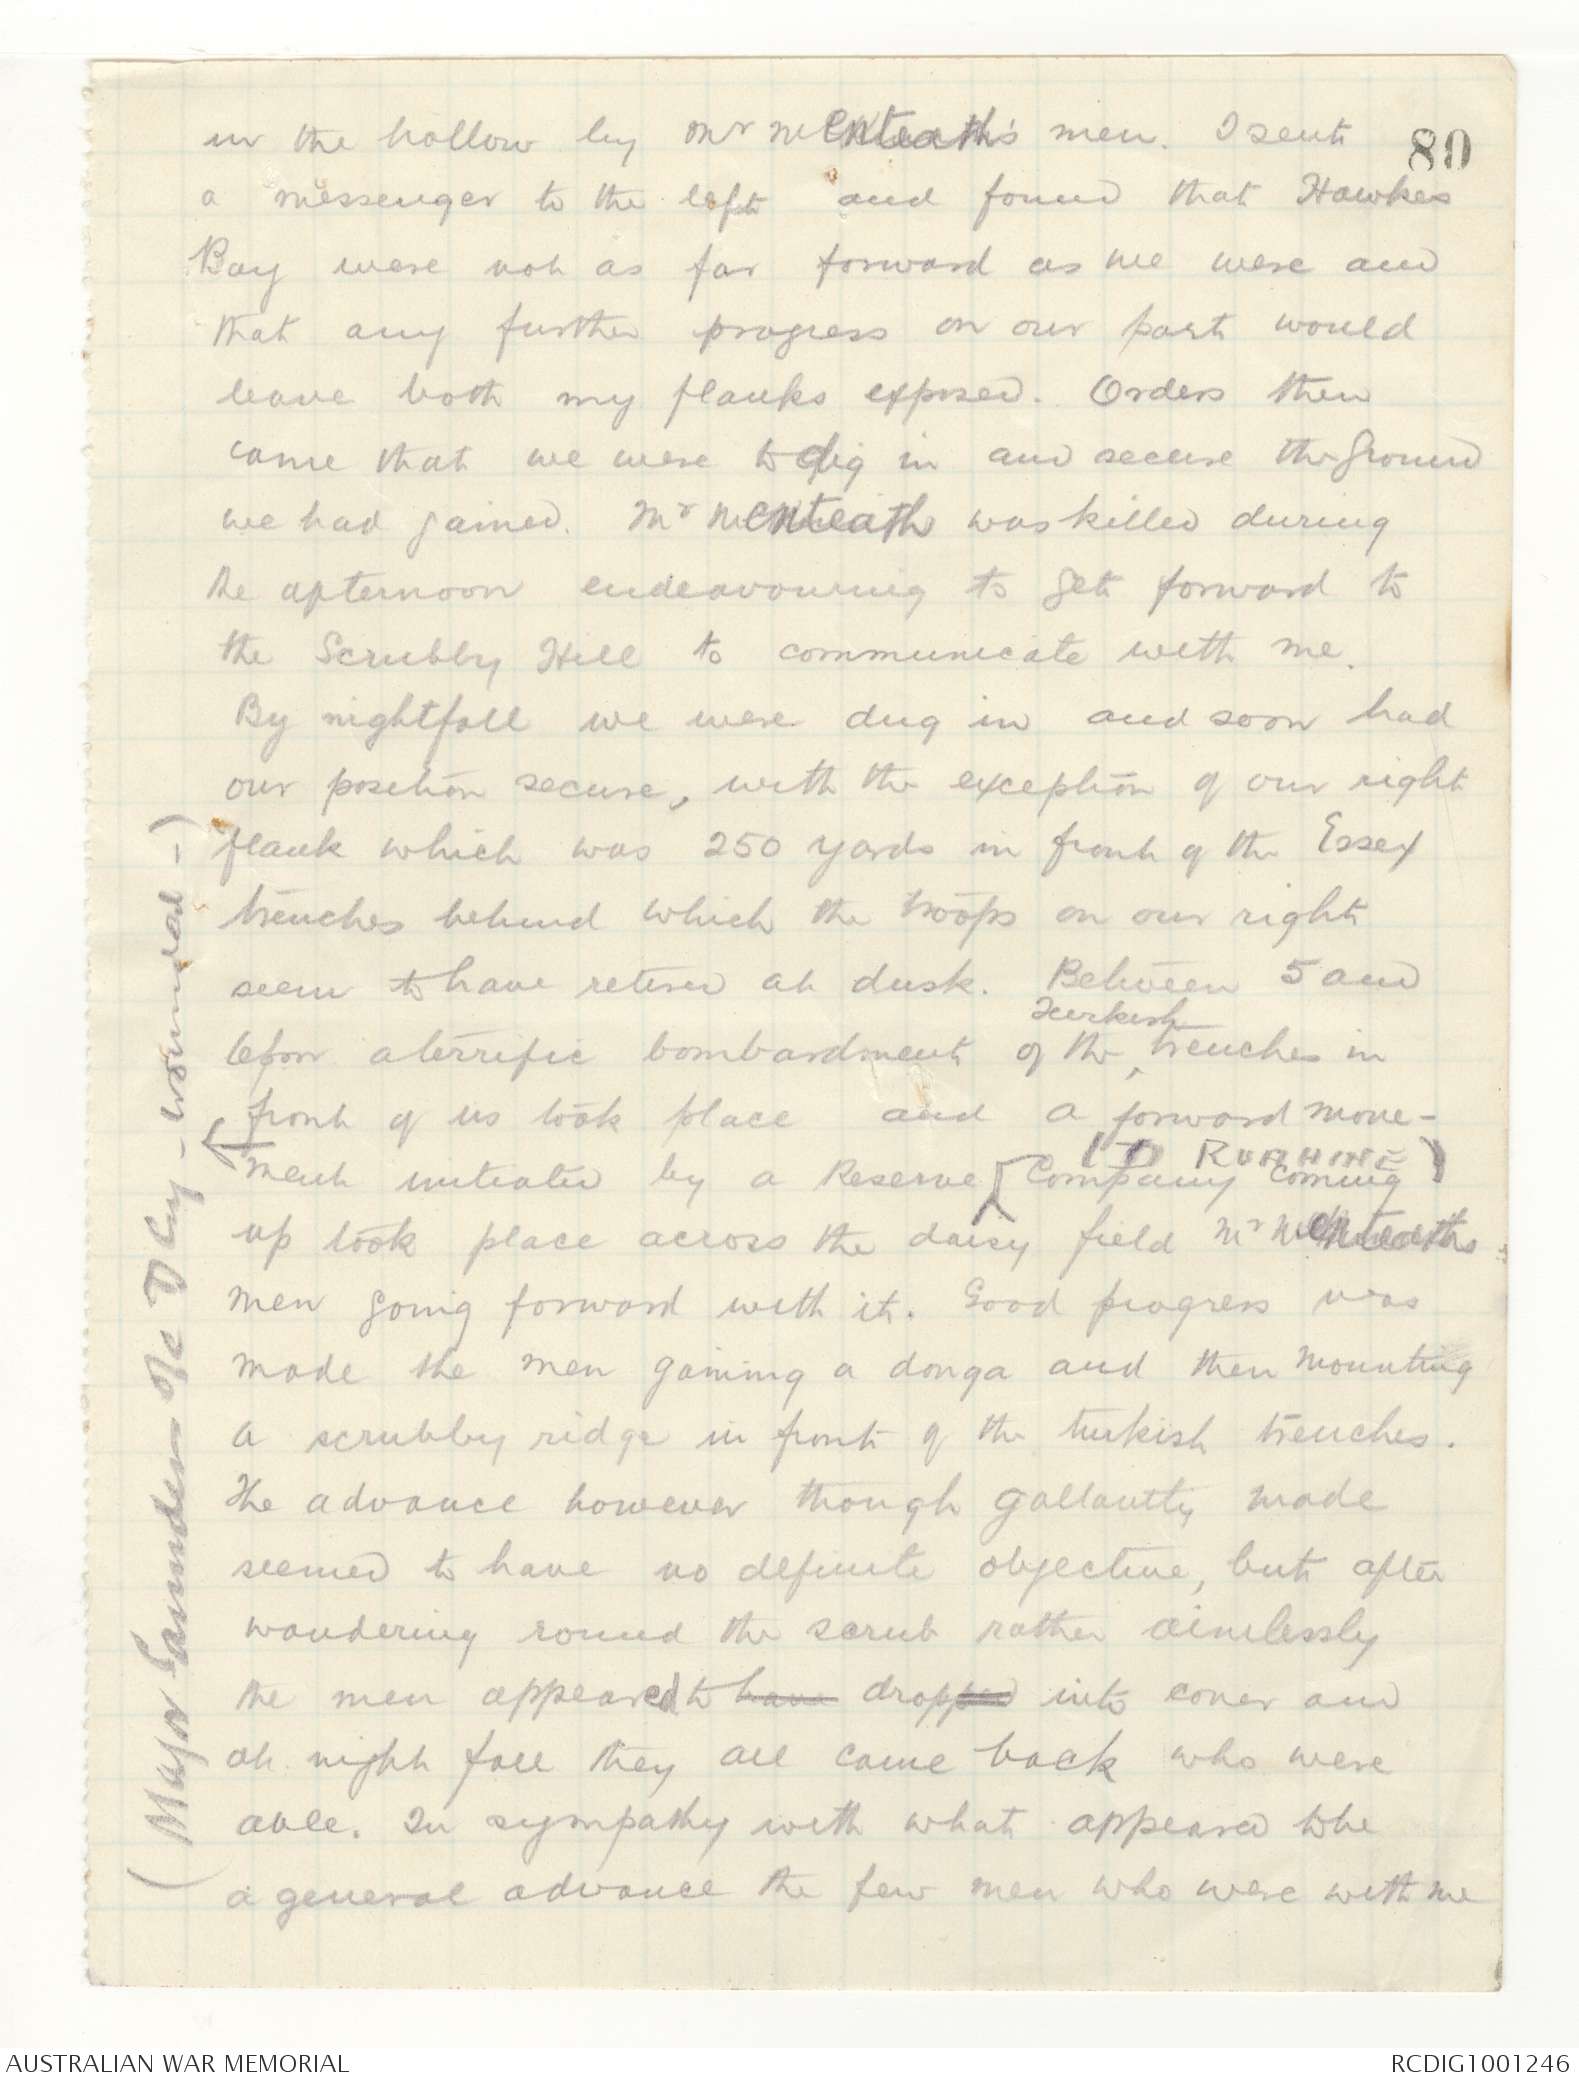 80
in the hollow by Mr McEnteath's men. I sent
a messenger to the left and found that Hawkes
Bay were not as far forward as we were and
that any further progress on our part would
leave both my flanks exposed. Orders then
came that we were to dig in and secure the ground
we had gained. Mr McEnteath was killed during
the afternoon endeavouring to get forward to
the Scrubby Hill to communicate with me.
By nightfall we were dug in and soon had
our position secure, with the exception of our right
flank which was 250 yards in front of the Essex
trenches behind which the troops on our right
seem to have retired at dusk. Between 5 and
6pm a terrific bombardment of the Turkish trenches in
front of us took place and a forward move-
ment initiated by a Reserve Company coming
(TO RUAHINE)
up took place across the daisy field Mr McEnteath's
men going forward with it. Good progress was
made the men gaining a donga and then mounting
a scrubby ridge in front of the turkish trenches.
The advance however though gallantly made
seemed to have no definite objective, but after
wandering round the scrub rather aimlessly
the men appeared to have dropped into cover and
at night fall they all came back who were
able. In sympathy with what appeared to be
a general advance the few men who were with me
(Major Saunders O/c D Coy - wounded -)
AUSTRALIAN WAR MEMORIAL
RCDIG1001246